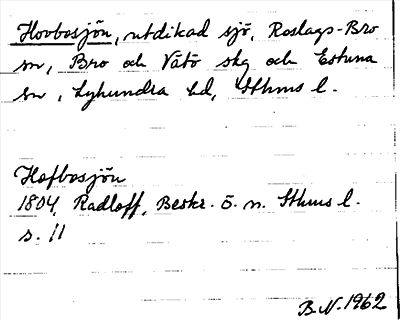 Hovbosjön, utdikad sjö, Roslags-Bro
sn, Bro och Vätö skg och Estuna
sn, Lyhundra hd, Sthms l.
Hofbosjön
1804, Radloff, Beskr. ö. n. Sthms l.
s. 11
B.N. 1962